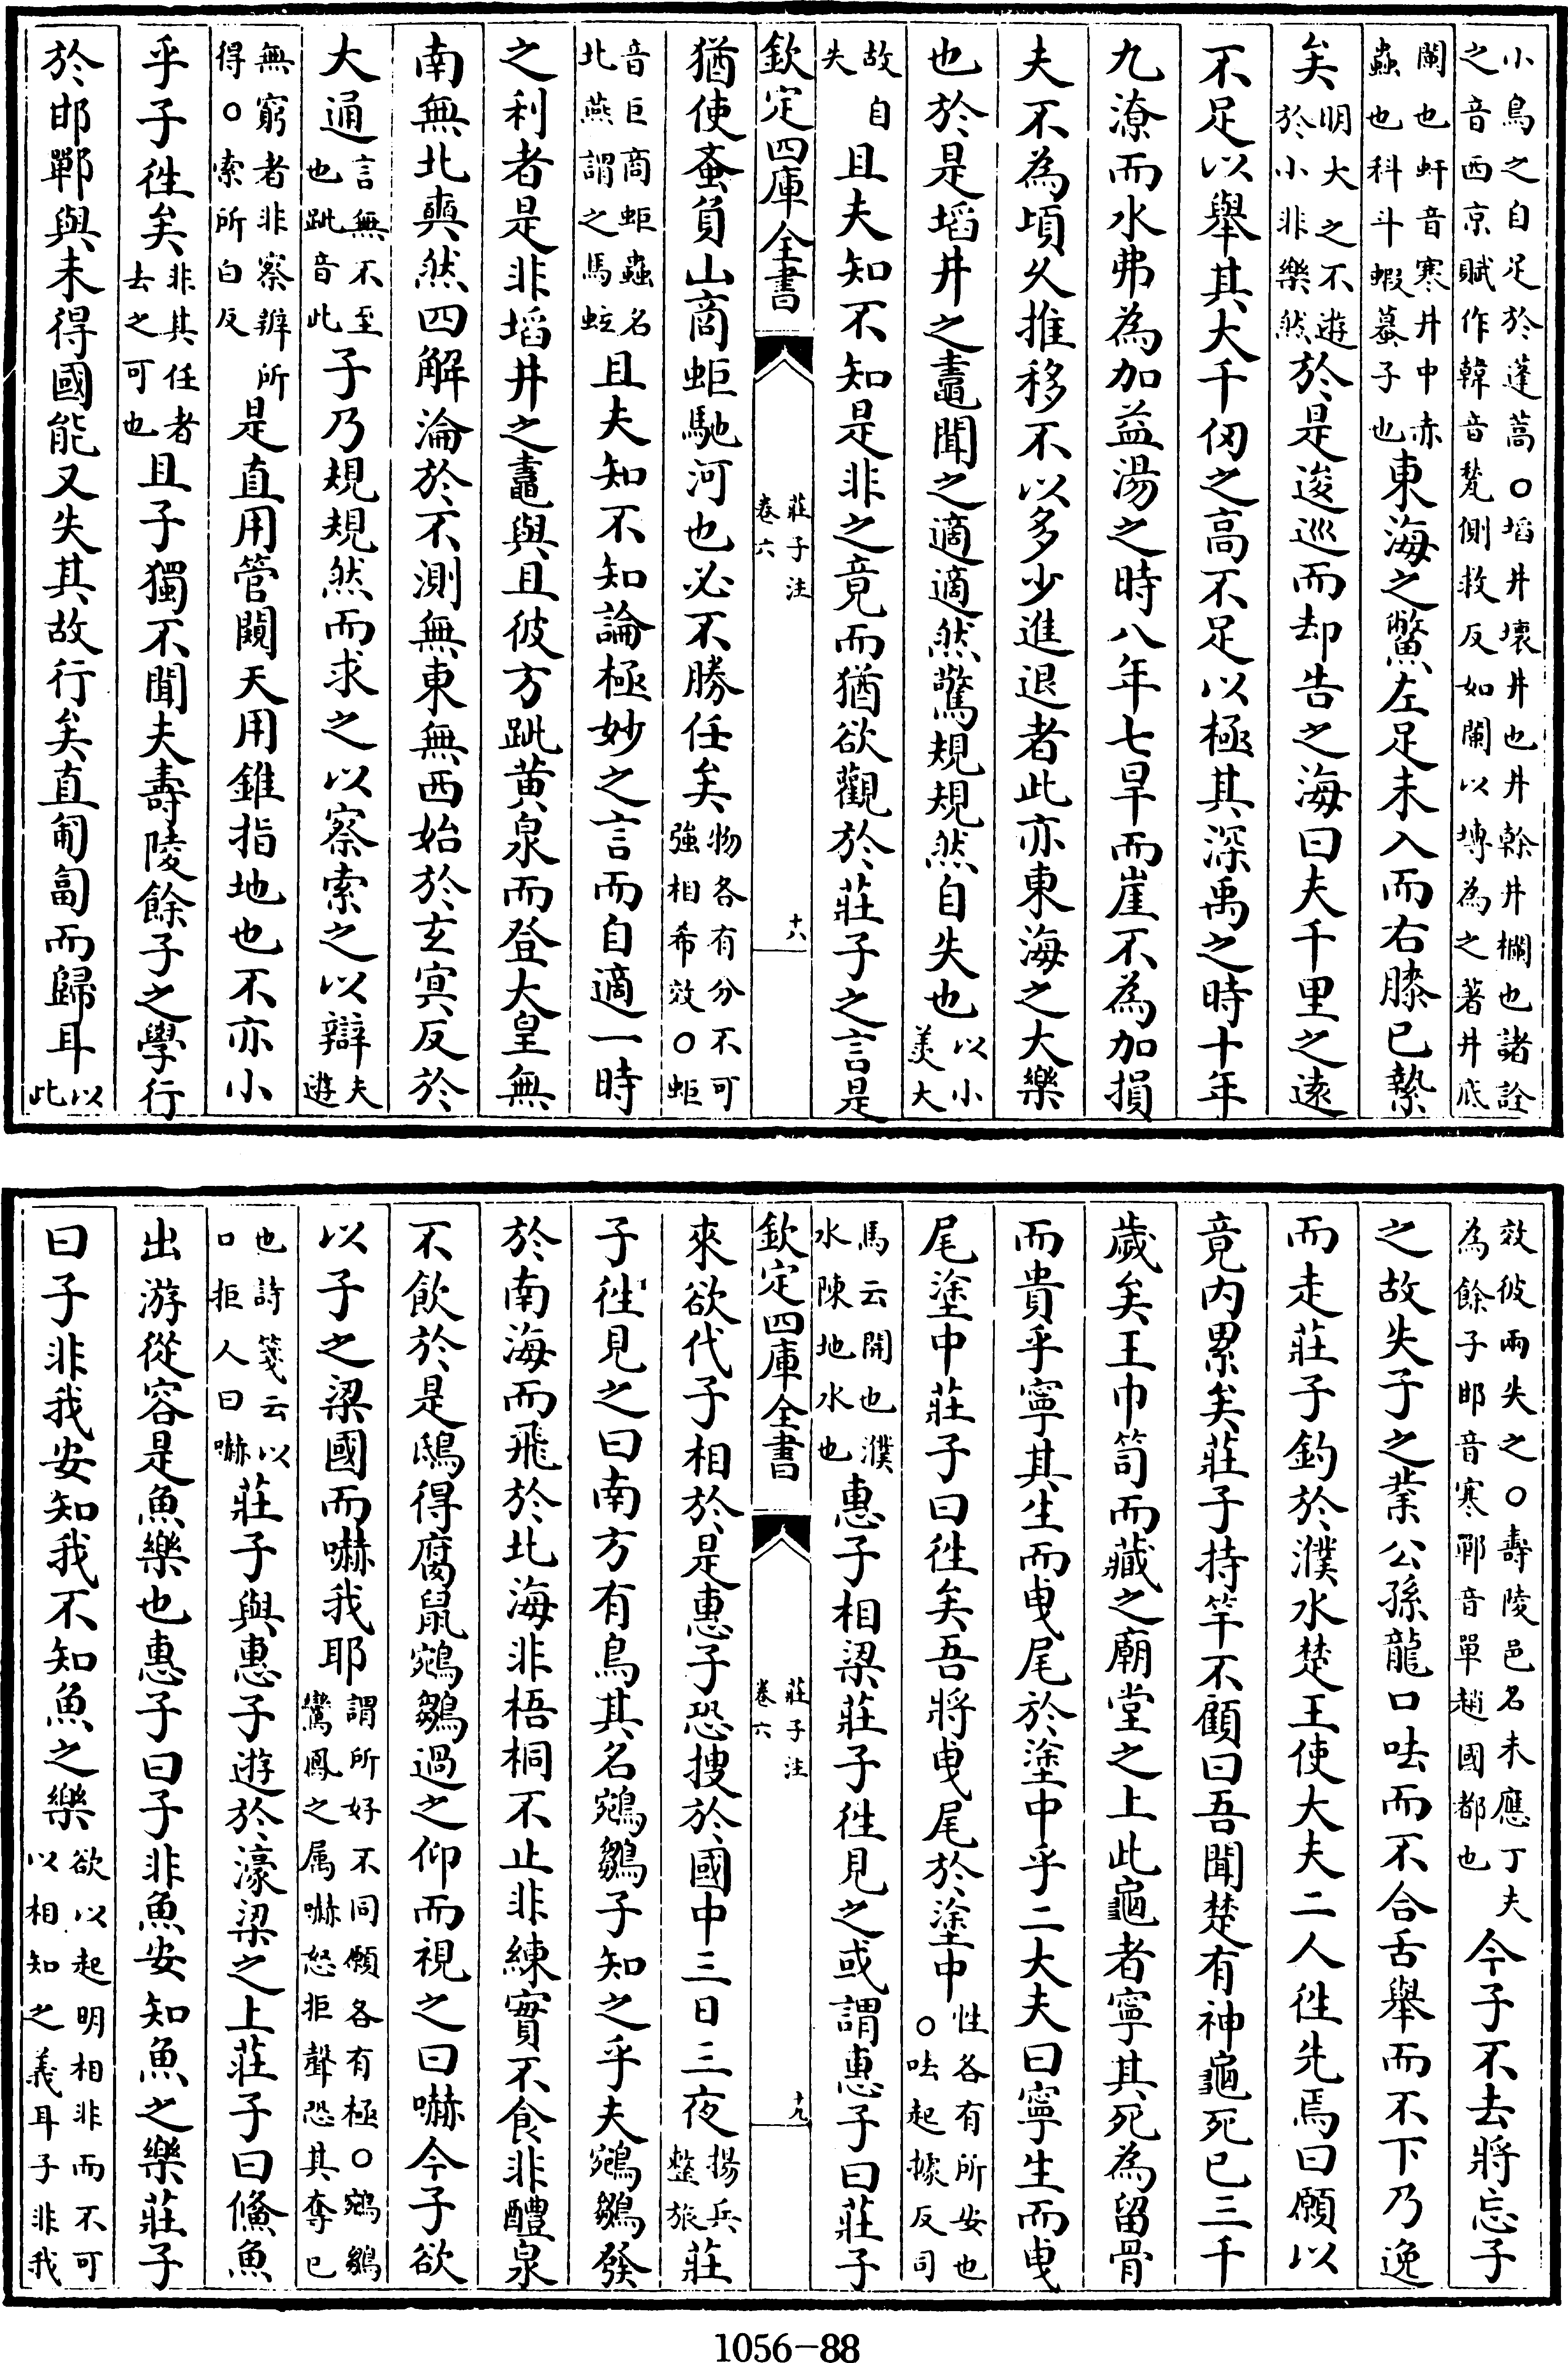 小鳥之自足於蓬蒿○埳井壞井也井幹井欄也諸詮
之音西京賦作韓音甃側救反如闌以塼為之著井底
闌也虷音寒井中赤蟲也科斗蝦蟇子也東海之鱉左足未入而右膝已縶
矣明大之不遊於小非樂然於是逡巡而却告之海曰夫千里之遠
不足以舉其大千仞之髙不足以極其深禹之時十年
九潦而水弗為加益湯之時八年七旱而崖不為加損
夫不為頃久推移不以多少進退者此亦東海之大樂
也於是埳井之鼃聞之適適然驚規規然自失也以小羨大
故自失且夫知不知是非之竟而猶欲觀於莊子之言是
欽定四庫全書
莊子注
卷六
十八
猶使蚉負山商蚷馳河也必不勝任矣物各有分不可強相希效○蚷
音巨商蚷蟲名北燕謂之馬蚿且夫知不知論極妙之言而自適一時
之利者是非埳井之鼃與且彼方跐黃泉而登大皇無
南無北奭然四解淪於不測無東無西始於玄冥反於
大通言無不至也跐音此子乃規規然而求之以察索之以辯夫遊
無窮者非察辨所得○索所白反是直用管闚天用錐指地也不亦小
乎子徃矣非其任者去之可也且子獨不聞夫壽陵餘子之學行
於邯鄲與未得國能又失其故行矣直匍匐而歸耳以此
效彼兩失之○壽陵邑名未應丁夫為餘子邯音寒鄲音單趙國都也今子不去將忘子
之故失子之業公孫龍口呿而不合舌舉而不下乃逸
而走莊子釣於濮水楚王使大夫二人徃先焉曰願以
竟内累矣莊子持竿不顧曰吾聞楚有神龜死已三千
歲矣王巾笥而藏之廟堂之上此龜者寧其死為留骨
而貴乎寧其生而曳尾於塗中乎二大夫曰寧生而曳
尾塗中莊子曰徃矣吾將曳尾於塗中性各有所安也○呿起據反司
馬云開也濮水陳地水也惠子相梁莊子徃見之或謂惠子曰莊子
欽定四庫全書
莊子注
卷六
十九
來欲代子相於是惠子恐搜於國中三日三夜揚兵整旅莊
子徃見之曰南方有鳥其名鵷鶵子知之乎夫鵷鶵發
於南海而飛於北海非梧桐不止非練實不食非醴泉
不飲於是鴟得腐鼠鵷鶵過之仰而視之曰嚇今子欲
以子之梁國而嚇我耶謂所好不同願各有極○鵷鶵鸞鳳之属嚇怒拒聲恐其奪已
也詩箋云以口拒人曰嚇莊子與惠子遊於濠梁之上莊子曰鯈魚
出游從容是魚樂也惠子曰子非魚安知魚之樂莊子
曰子非我安知我不知魚之樂欲以起明相非而不可以相知之義耳子非我
1056-88